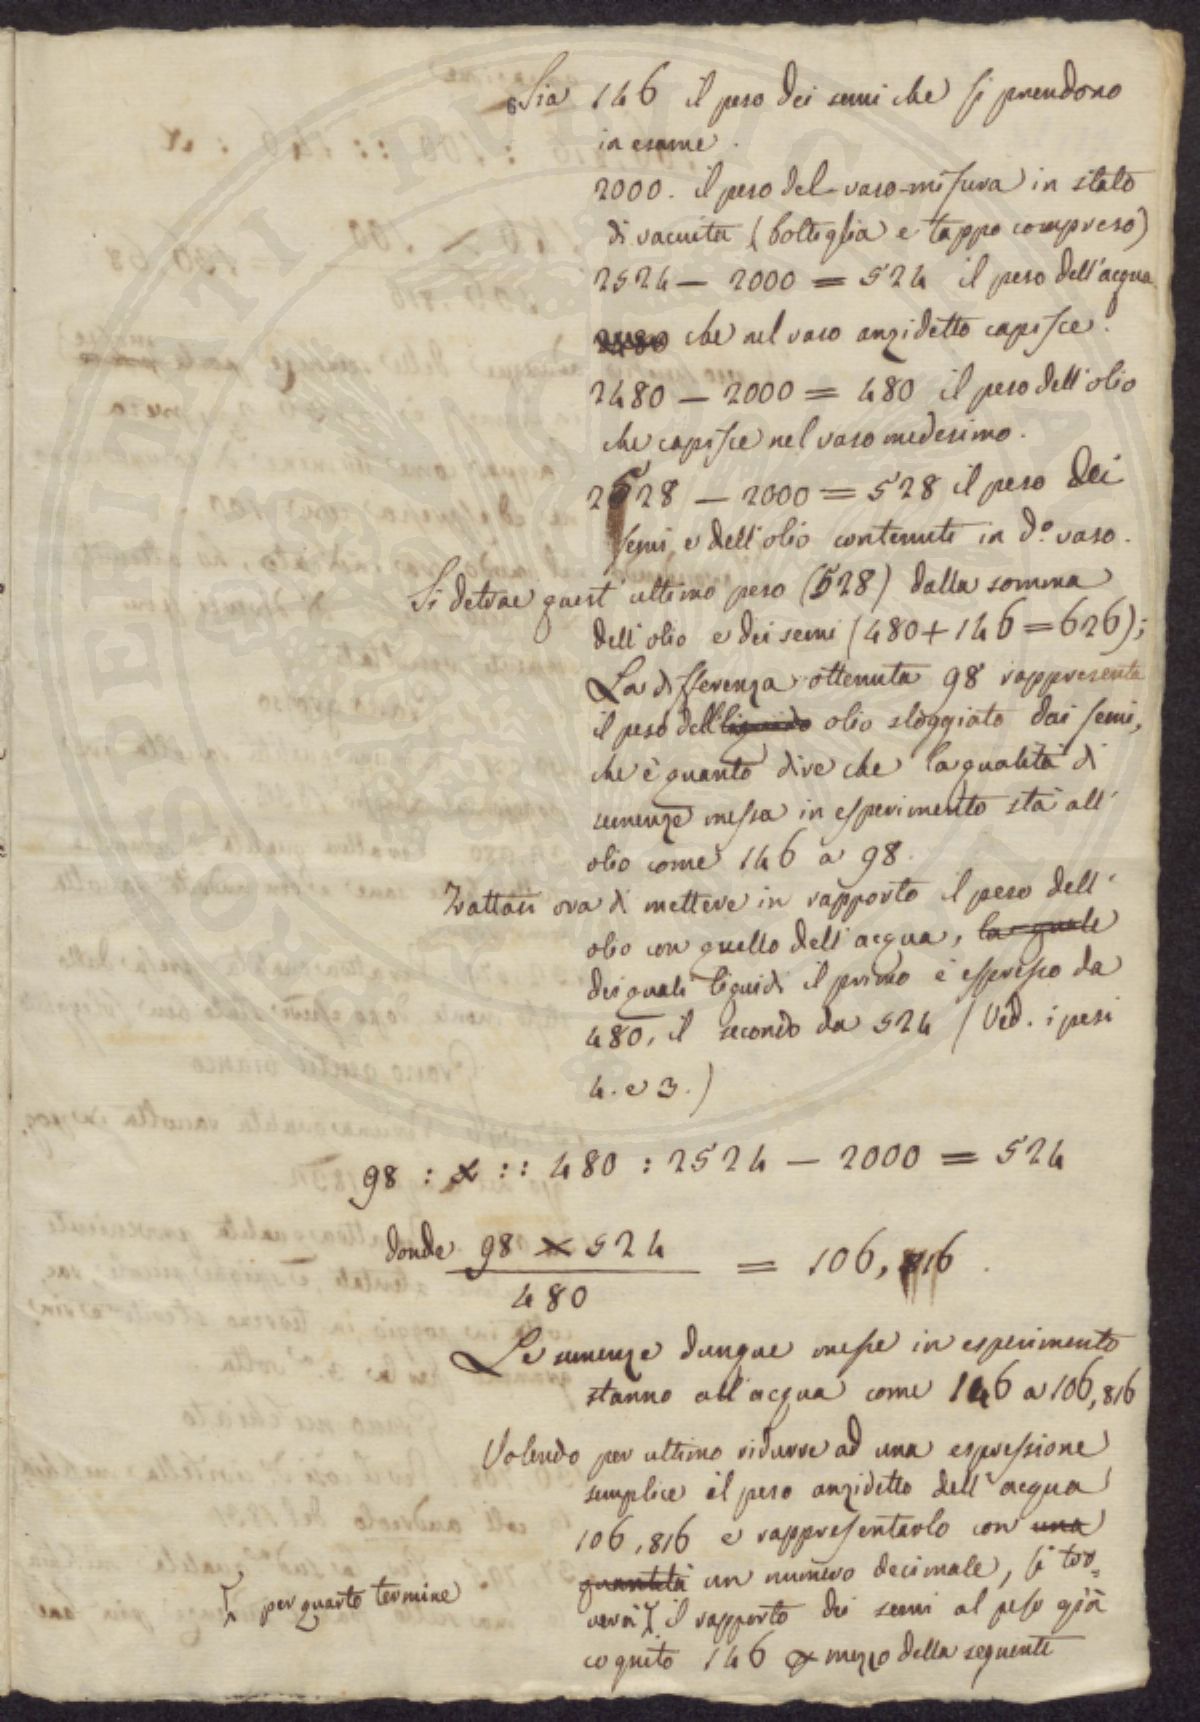 Sia 146 il peso dei semi che si prendono
in esame.
2000. il peso del vaso-misura in stato
di vacuità (bottiglia e tappo compreso)
2524 — 2000 = 524 il peso dell'acqua
2480 che nel vaso anzidetto capisce.
2480 — 2000 = 480 il peso dell'olio
che capisce nel vaso medesimo.
2528 — 2000 = 528 il peso dei
semi e dell'olio contenuti in d.o vaso.
Si detrae quest'ultimo peso (528) dalla somma
dell'olio e dei semi (480+146=626);
La differenza ottenuta 98 rappresenta
il peso dell'liquido olio sloggiato dai semi,
che è quanto dire che la qualità di
semenze messa in esperimento sta all'
olio come 146 a 98.
Trattasi ora di mettere in rapporto il peso dell'
olio con quello dell'acqua, la quale
dei quali liquidi il primo è espresso da
480, il secondo da 524 (Ved. i pesi
4. e 3.)
98 : x :: 480 : 2524 — 2000 = 524
donde 98 × 524
= 106,816.
480
Le semenze dunque messe in esperimento
stanno all'acqua come 146 a 106,816
Volendo per ultimo ridurre ad una espressione
semplice il peso anzidetto dell'acqua
106,816 e rappresentarlo con una
quantità un numero decimale, si tro=
per quarto termine
verà il rapporto dei semi al peso già
cognito 146 mezzo della seguente